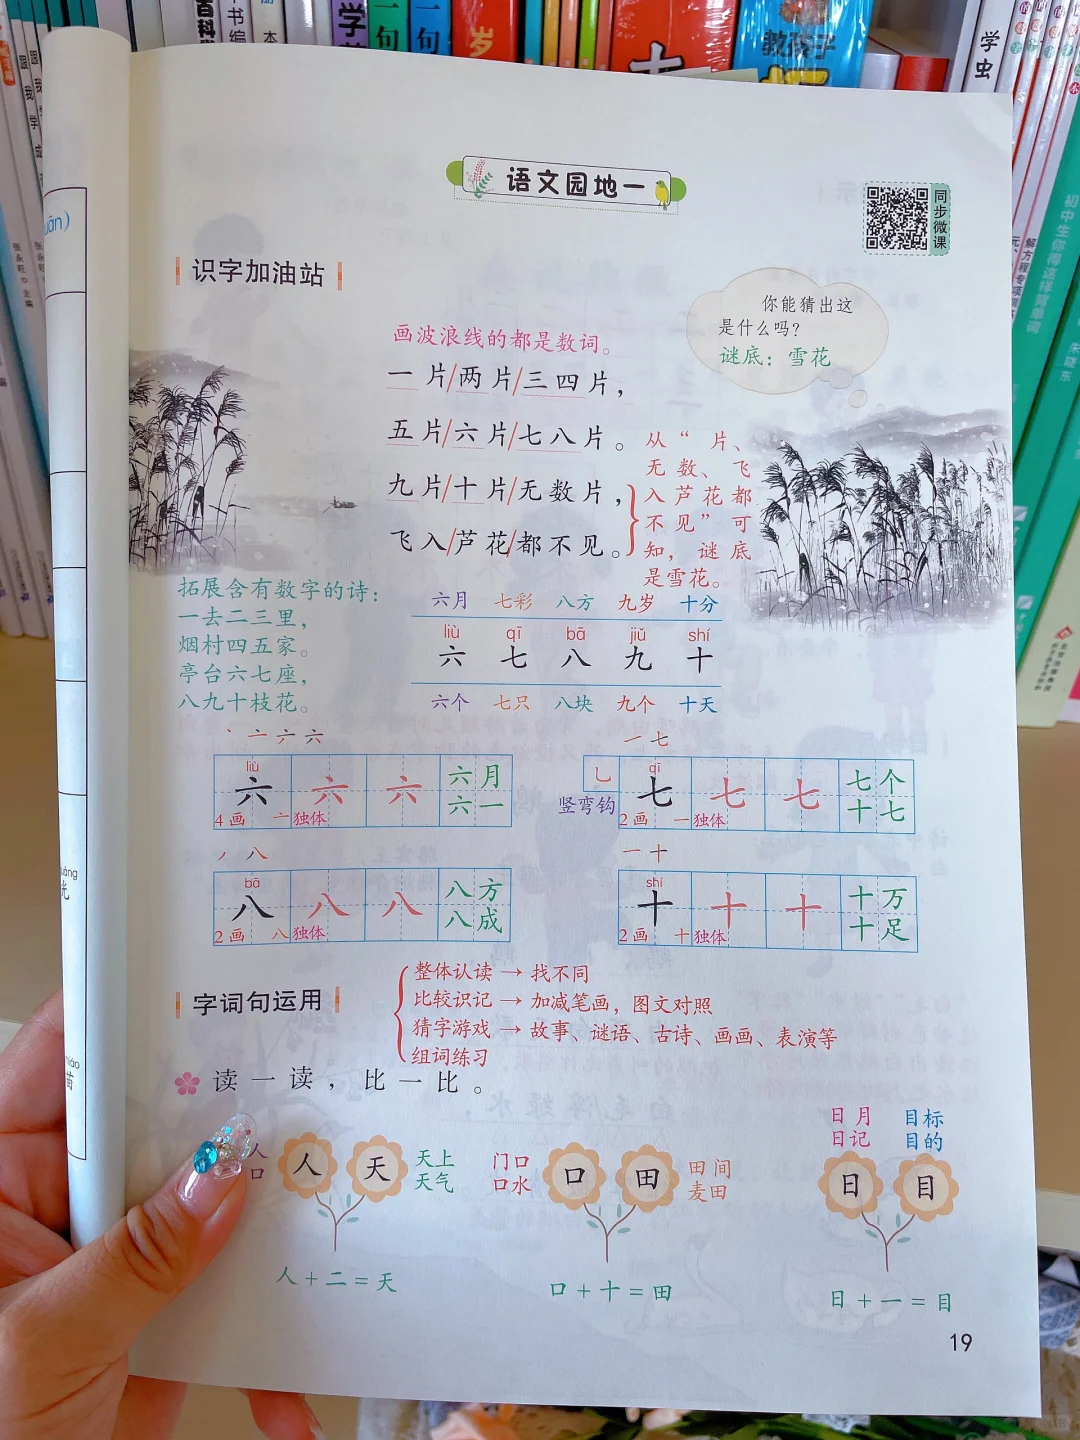 百科学
书编
学
一句
一句
岁
教孩子
学虫
初中生你得这样背单词
朱晓东
解方程专项
跟我学
张永旺◎主编
uān）
语文园地一
同步微课
识字加油站
你能猜出这
是什么吗？
谜底：雪花
画波浪线的都是数词。
一片/两片/三四片，
五片/六片/七八片。
九片/十片/无数片，
飞入/芦花/都不见。
从“片、
无数、飞
入芦花都
不见”可
知，谜底
是雪花。
拓展含有数字的诗：
一去二三里，
烟村四五家。
亭台六七座，
八九十枝花。
六月 七彩 八方 九岁 十分
liù qī bā jiǔ shí
六 七 八 九 十
六个 七只 八块 九个 十天
丶 亠 六 六
liù
六 六 六 六月
六一
4画 亠 独体
一 七
乚
竖弯钩
qī
七 七 七 七个
十七
2画 一 独体
丿 八
bā
八 八 八 八方
八成
2画 八 独体
一 十
shí
十 十 十 十万
十足
2画 十 独体
字词句运用
整体认读→找不同
比较识记→加减笔画，图文对照
猜字游戏→故事、谜语、古诗、画画、表演等
组词练习
读一读，比一比。
人
口
人 天
天上
天气
门口
口水
口 田
田间
麦田
日月
日记
目标
目的
日 目
人＋二＝天
口＋十＝田
日＋一＝目
19